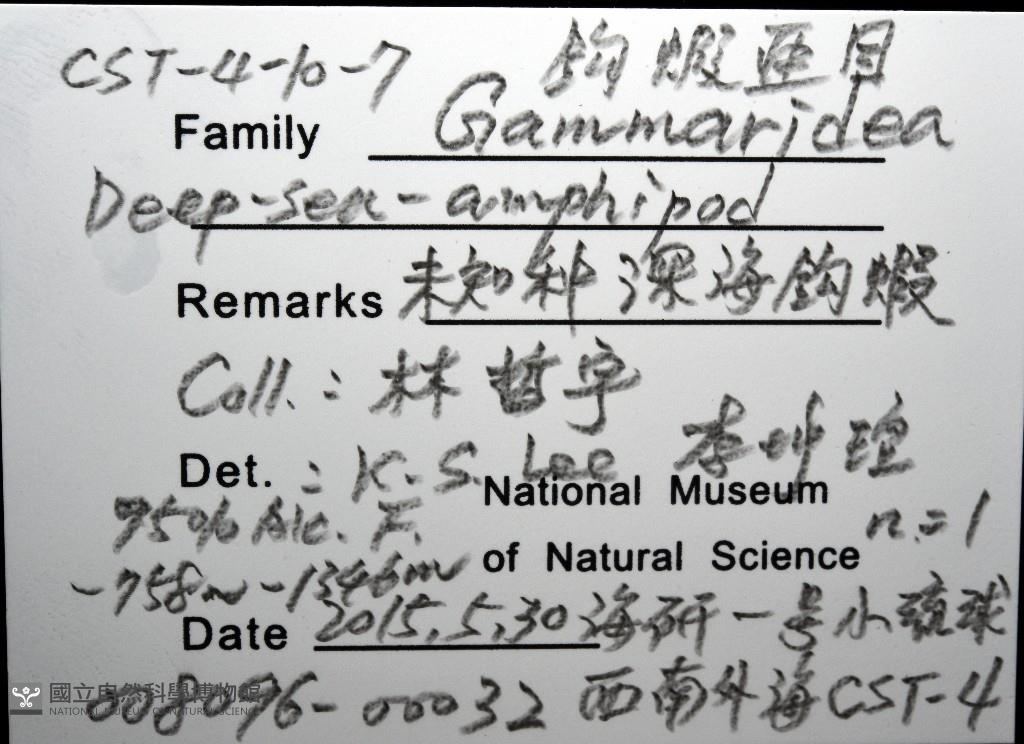 CST-4-10-7 鈎蝦亞目
Family Gammaridea
Deep-sea-amphipod
Remarks 未知科 深海鈎蝦
Coll.: 林哲宇
Det.: K.S. Lee 李坤瑄
National Museum
75% Alc. F. n=1
of Natural Science
-758m -1346m
Date 2015.5.30 海研一号小琉球
-00032 西南外海CST-4
國立自然科學博物館
NATIONAL MUSEUM OF NATURAL SCIENCE